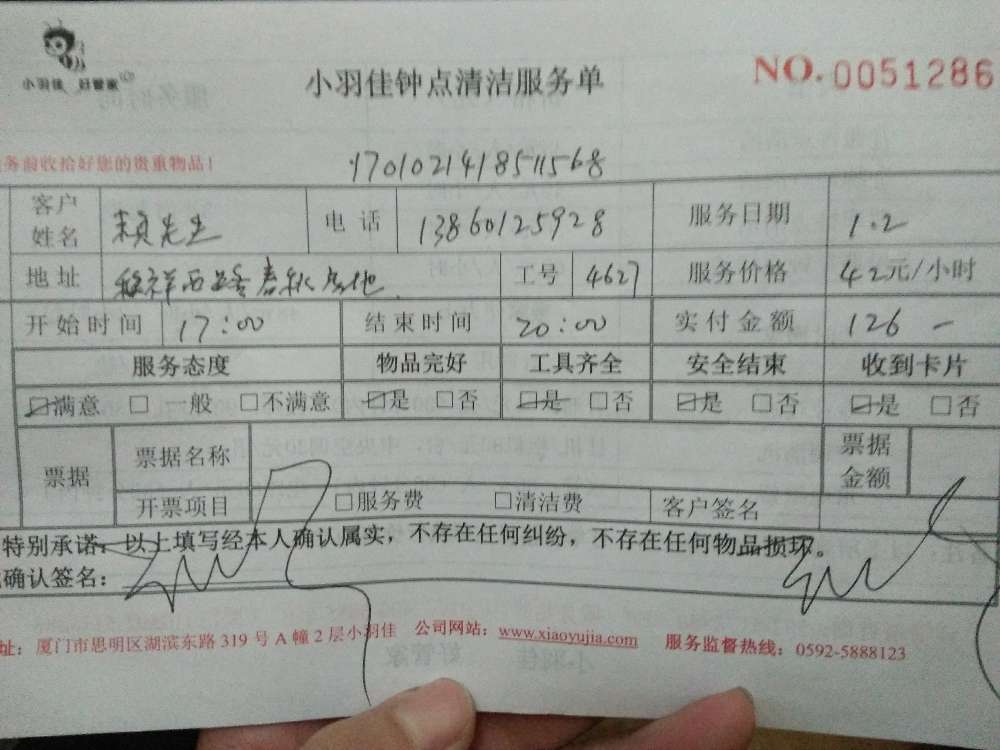 小羽佳 好管家
小羽佳钟点清洁服务单
NO.0051286
务前收拾好您的贵重物品！
170102141851568
客户姓名 赖先生 电话 13860125928 服务日期 1.2
地址 西路春秋 工号 4627 服务价格 42元/小时
开始时间 17:00 结束时间 20:00 实付金额 126 —
服务态度 物品完好 工具齐全 安全结束 收到卡片
☑满意 □一般 □不满意 ☑是 □否 ☑是 □否 ☑是 □否 ☑是 □否
票据 票据名称 票据金额
开票项目 □服务费 □清洁费 客户签名
特别承诺：以上填写经本人确认属实，不存在任何纠纷，不存在任何物品损坏。
确认签名：
址：厦门市思明区湖滨东路 319 号 A 幢 2 层小羽佳 公司网站：www.xiaoyujia.com 服务监督热线：0592-5888123